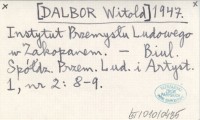 [DALBOR Witold] 1947.
Instytut Przemysłu Ludowego
w Zakopanem. — Biul.
Spółdz. Przem. Lud. i Artyst.
1, nr 2: 8-9.